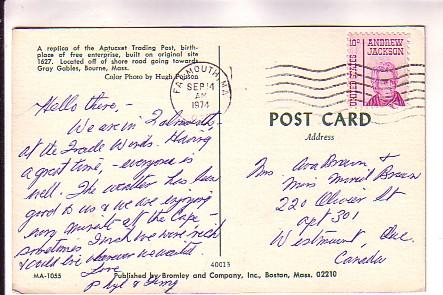 A replica of the Aptucxet Trading Post, birth-
place of free enterprise, built on original site
1627. Located off of shore road going towards
Gray Gables, Bourne, Mass.
Color Photo by Hugh
Hello there, —
We are in Falmouth
at the Trade Winds. Having
a great time, — everyone is
well. The weather has been
good to us & we are enjoying
every minute at the Cape —
sometimes I wish we were rich
& could live wherever we wanted.
Love
Phyl &
FALMOUTH, MA
SEP 14
AM
1974
10c ANDREW
JACKSON
UNITED STATES
POST CARD
Address
Mrs. Ava Brown &
Miss Brown
220 Olivier St
apt 301
Westmount, Que.
Canada
40015
MA-1055
Published by Bromley and Company, Inc., Boston, Mass. 02210